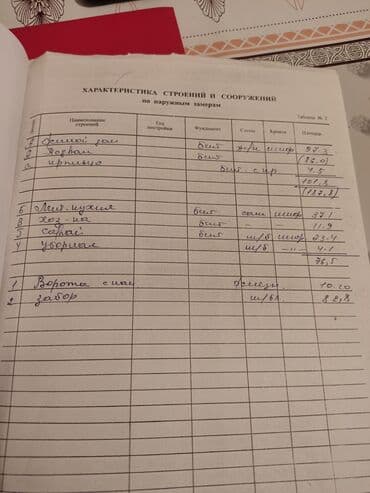 ХАРАКТЕРИСТИКА СТРОЕНИЙ И СООРУЖЕНИЙ
по наружным замерам
Таблица № 2
Наименование строений Год постройки Фундамент Стены Кровля Площадь
Жилой дом бет шифер 97.3
Подвал бет
крыльцо бет 4.5
101,8
Б Лет. кухня бет сам шифер 37.1
бет – – 11.9
сарай бет ш/б шифер 23.4
У уборная ш/б –"– 4.1
76,5
1 Ворота 10.20
2 забор ш/бл 82,8